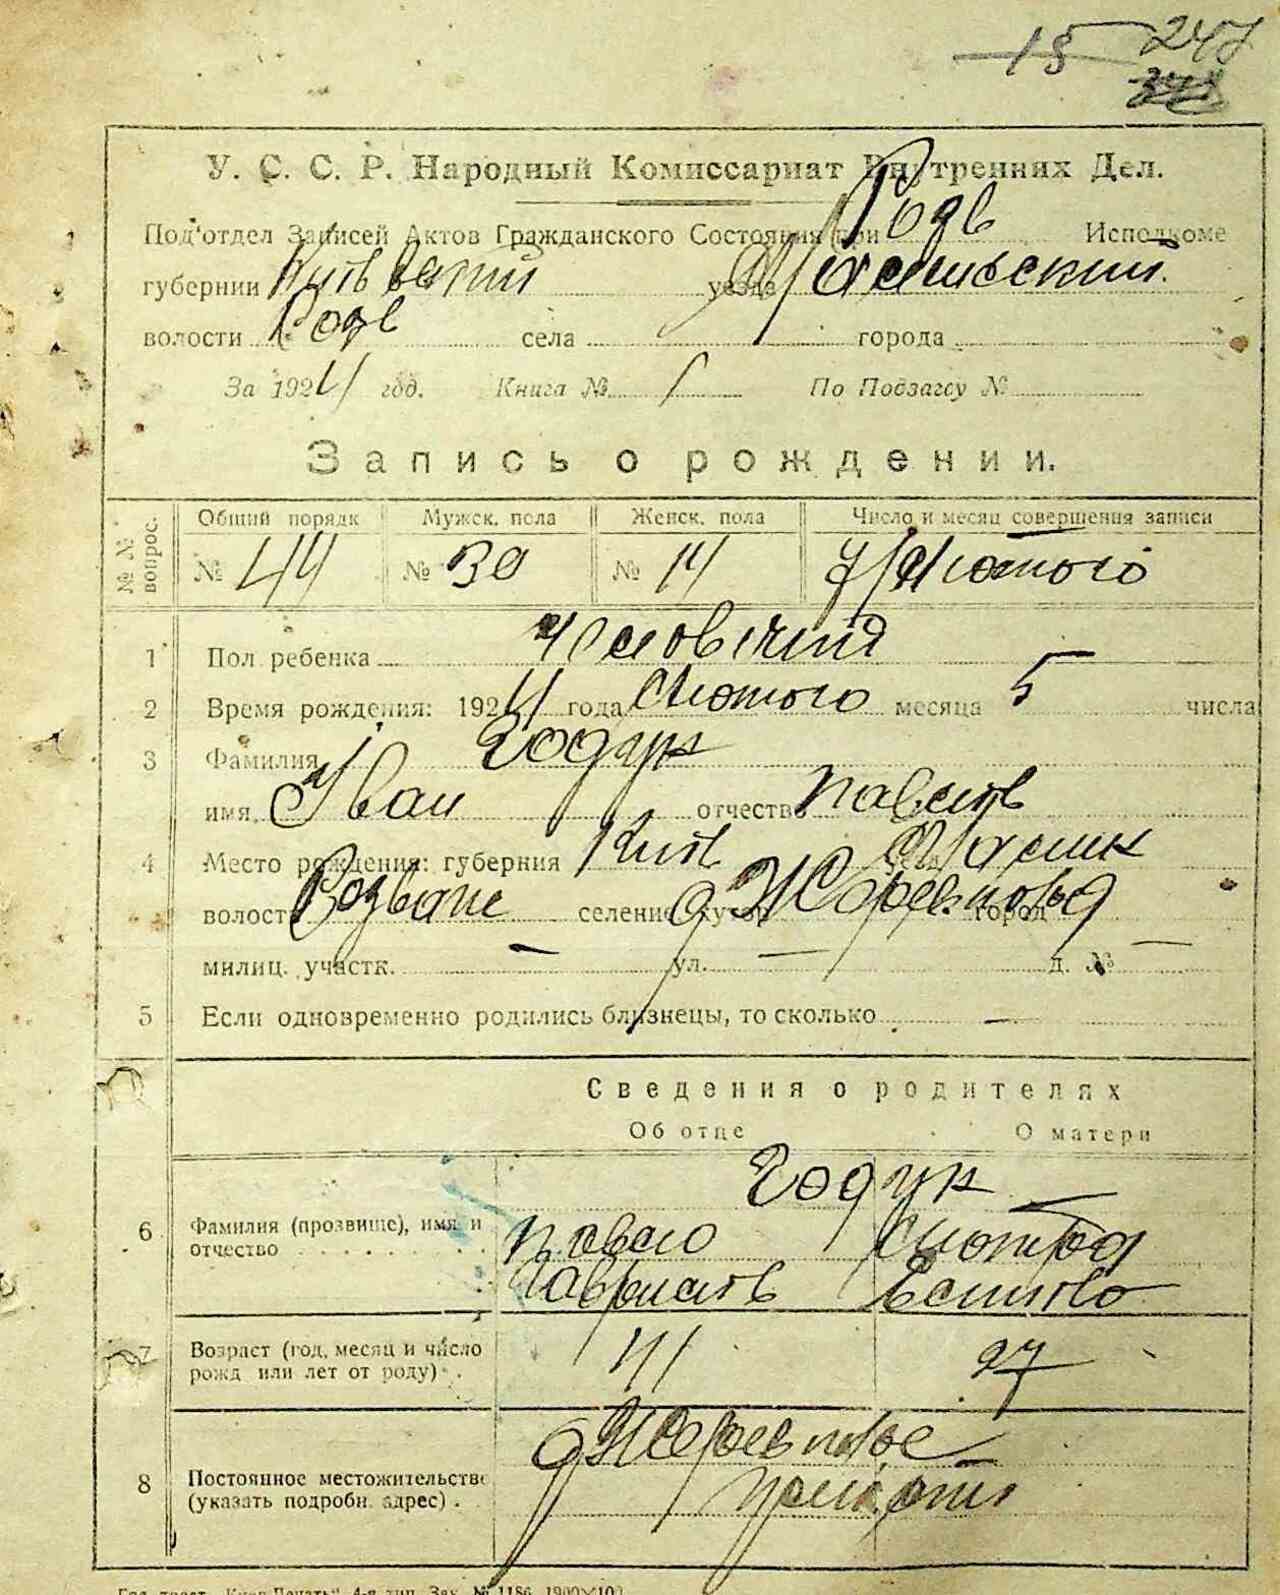 15 247
У. С. С. Р. Народный Комиссариат Внутренних Дел.
Под'отдел Записей Актов Гражданского Состояния при Розв Исполкоме
губернии уезда
волости Розв села города
За 1924 год. Книга № 1 По Подзагсу №
Запись о рождении.
№ № вопрос. Общий порядк Мужск. пола Женск. пола Число и месяц совершения записи
№ 44 № 30 № 14 7/Лютого
1 Пол ребенка Чоловічий
2 Время рождения: 1924 года Лютого месяца 5 числа
3 Фамилия Годук
имя Іван отчество Павлів
4 Место рождения: губерния Київ
волость Розваж селение, хутор город
милиц. участк. — ул. — д. № —
5 Если одновременно родились близнецы, то сколько —
Сведения о родителях
Об отце О матери
Годук
6 Фамилия (прозвище), имя и отчество Павло
7 Возраст (год, месяц и число рожд или лет от роду) 27
8 Постоянное местожительство (указать подробн. адрес)
Гос. трест „Киев-Печать" 4-я тип. Зак. № 1186